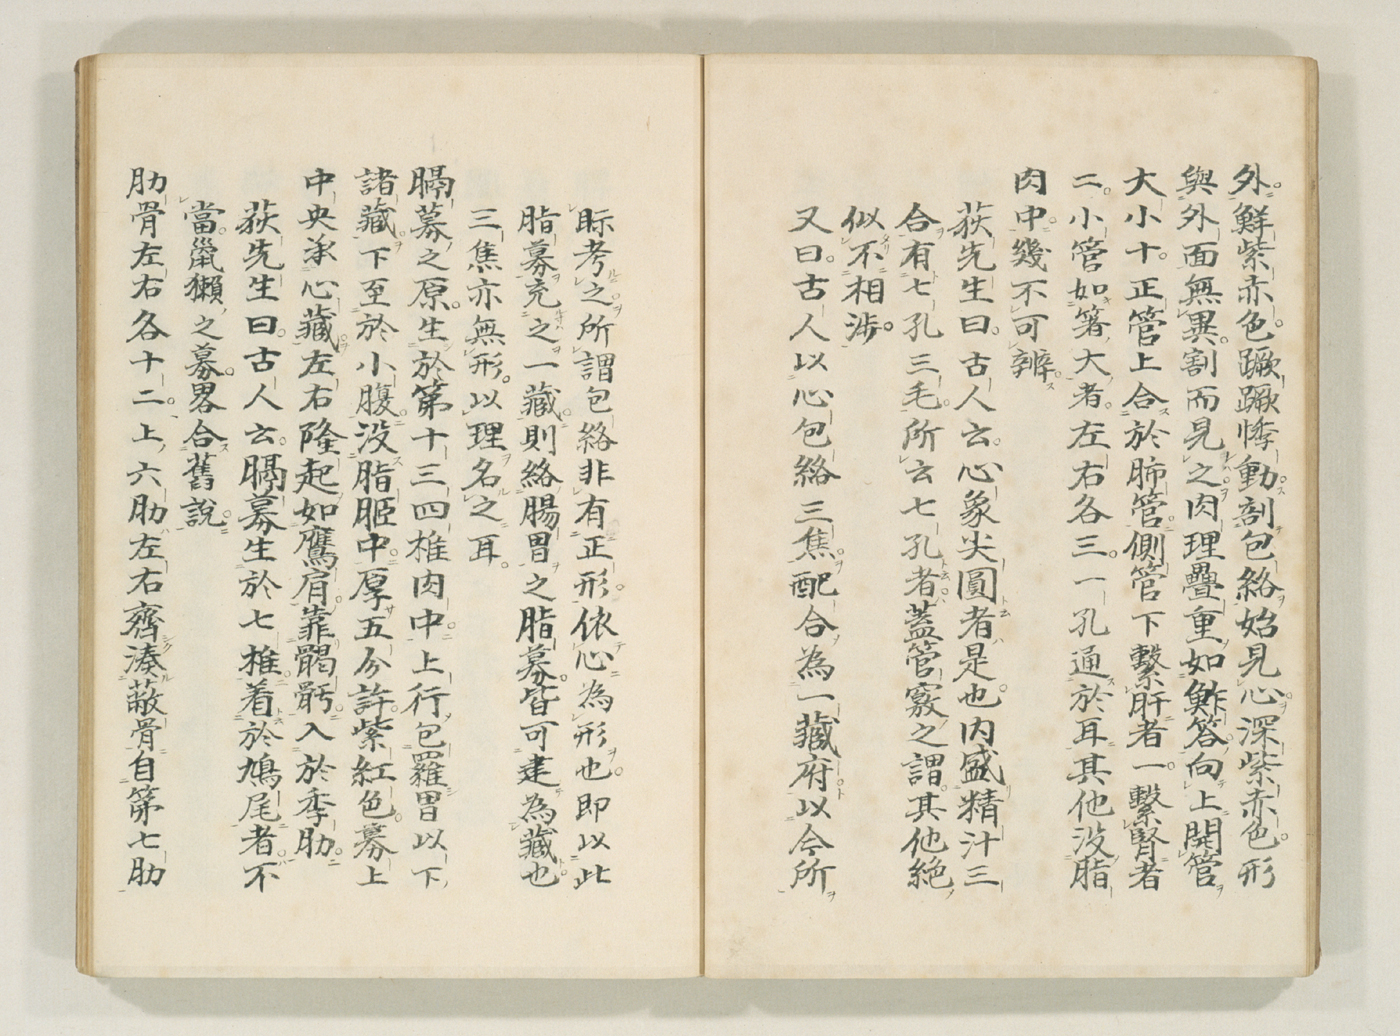 外鮮紫赤色蹶蹶悸動剖包絡始見心深紫赤色形
與外面無異割而見之肉理疊重如鮓答向上開管
大小十正管上合於肺管側管下繫肝者一繫腎者
二小管如箸大者左右各三一孔通於耳其他没脂
肉中幾不可辨
荻先生曰古人云心象尖圓者是也内盛精汁三
合有七孔三毛所云七孔者蓋管竅之謂其他絶
似不相渉
又曰古人以心包絡三焦配合為一藏府以今所
眎考之所謂包絡非有正形依心為形也即以此
脂募充之一藏則絡腸胃之脂募皆可建為藏也
三焦亦無形以理名之耳
膈募之原生於第十三四椎肉中上行包羅胃以下
諸藏下至於小腹没脂䐃中厚五分許紫紅色募上
中央承心藏左右隆起如鷹肩靠髃骬入於季肋
荻先生曰古人云膈募生於七椎着於鳩尾者不
當㲋獺之募畧合舊説
肋骨左右各十二上六肋左右齊湊蔽骨自第七肋